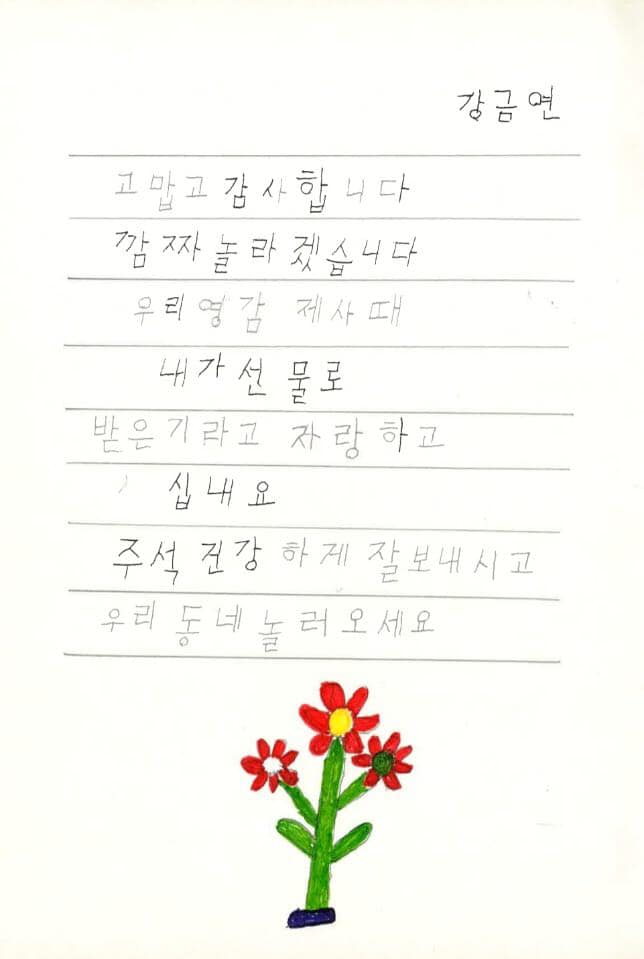 강금연
고맙고 감사합니다
깜짜놀라겠습니다
우리영감 제사때
내가선물로
받은기라고 자랑하고
십내요
주석 건강하게 잘보내시고
우리동네놀러오세요